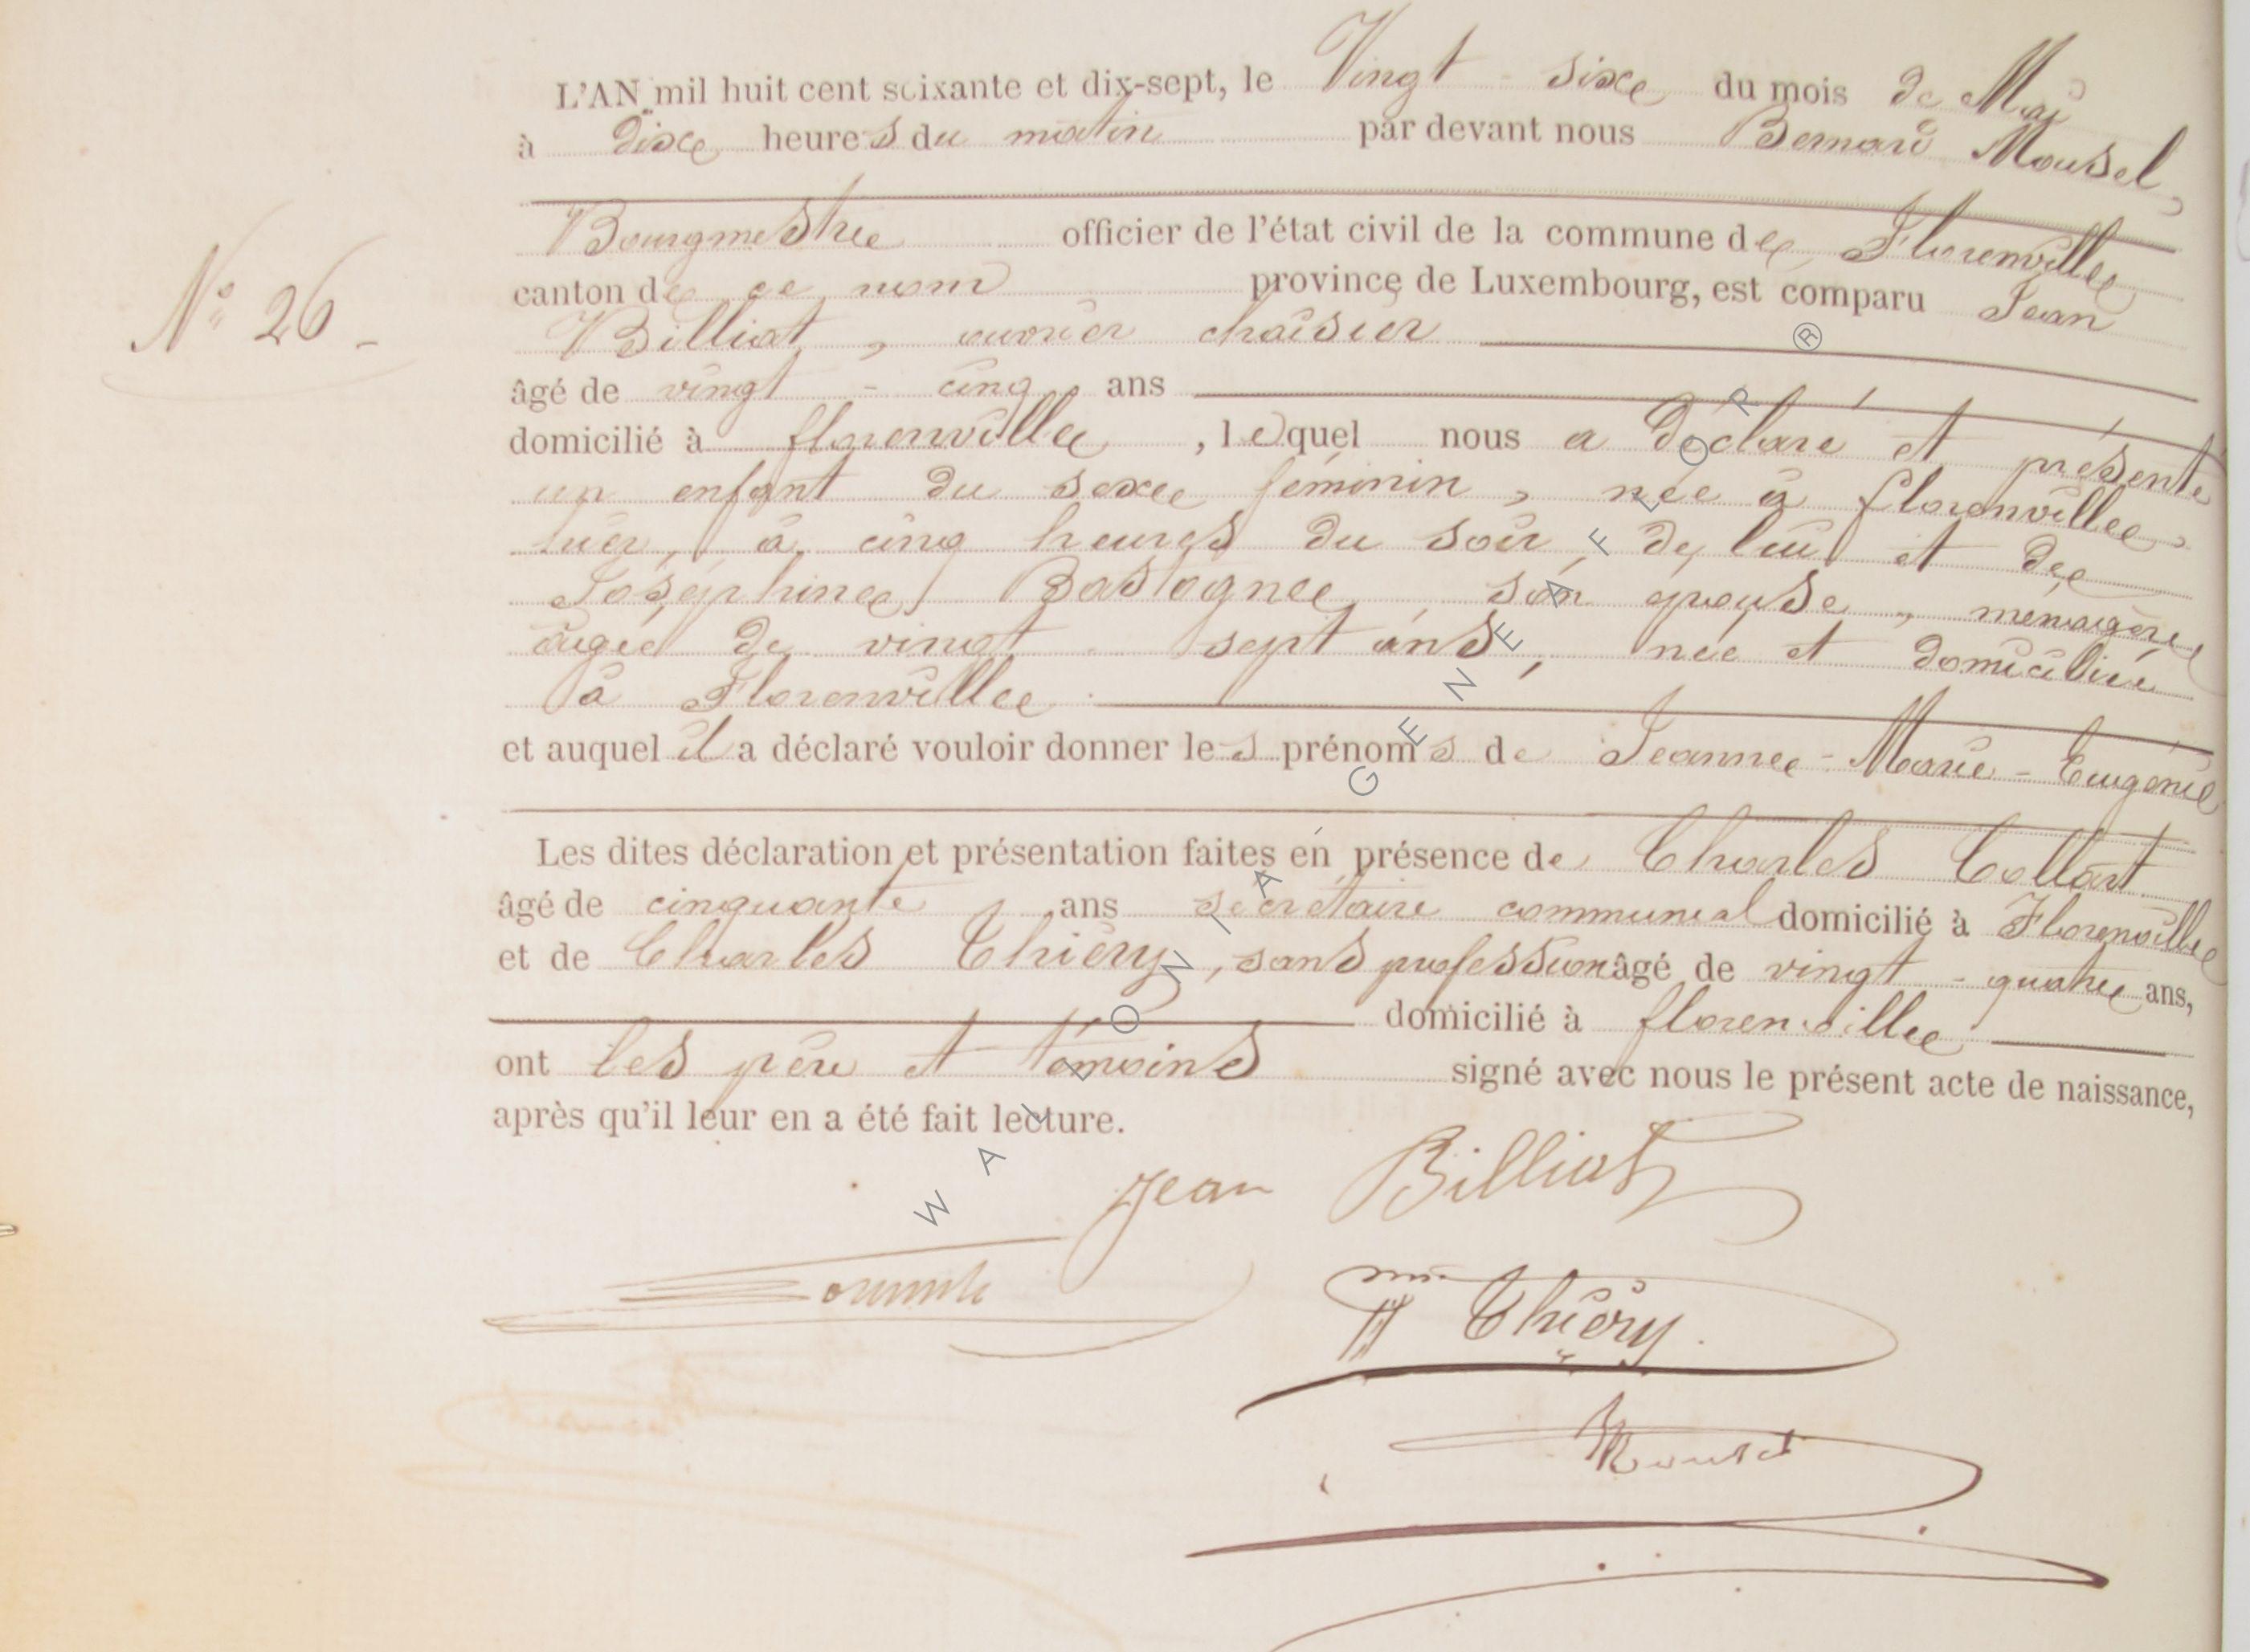 L'AN mil huit cent soixante et dix-sept, le Vingt-six du mois de Mai
à dix heures du matin par devant nous Bernard Mousel,
Bourgmestre officier de l'état civil de la commune de Florenville
canton de ce nom province de Luxembourg, est comparu Jean
N° 26 -
Billiot, ouvrier chaisier
âgé de vingt-cinq ans
domicilié à florenville, lequel nous a déclaré et présenté
un enfant du sexe féminin, née à florenville,
hier, à cinq heures du soir, de lui et de
Joséphine Bastogne son épouse, ménagère
âgée de vingt-sept ans, née et domiciliée
à Florenville.
et auquel il a déclaré vouloir donner les prénoms de Jeanne-Marie-Eugénie
Les dites déclaration et présentation faites en présence de Charles Collart
âgé de cinquante ans secrétaire communal domicilié à Florenville
et de Charles Thiéry, sans profession âgé de vingt-quatre ans,
domicilié à florenville
ont les père et témoins signé avec nous le présent acte de naissance,
après qu'il leur en a été fait lecture.
Jean Billiot
Thiéry.
Mousel
WALLONIA GENEAFLOP ®